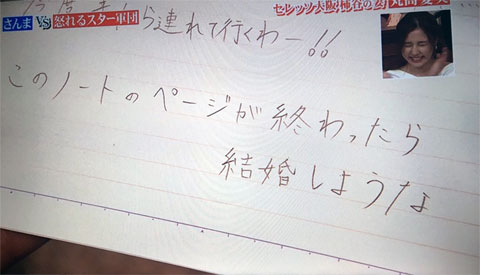 さんま VS 怒れるスター軍団
セレッソ大阪 柿谷の妻 丸高愛実
ら連れて行くわー!!
このノートのページが終わったら
結婚しような